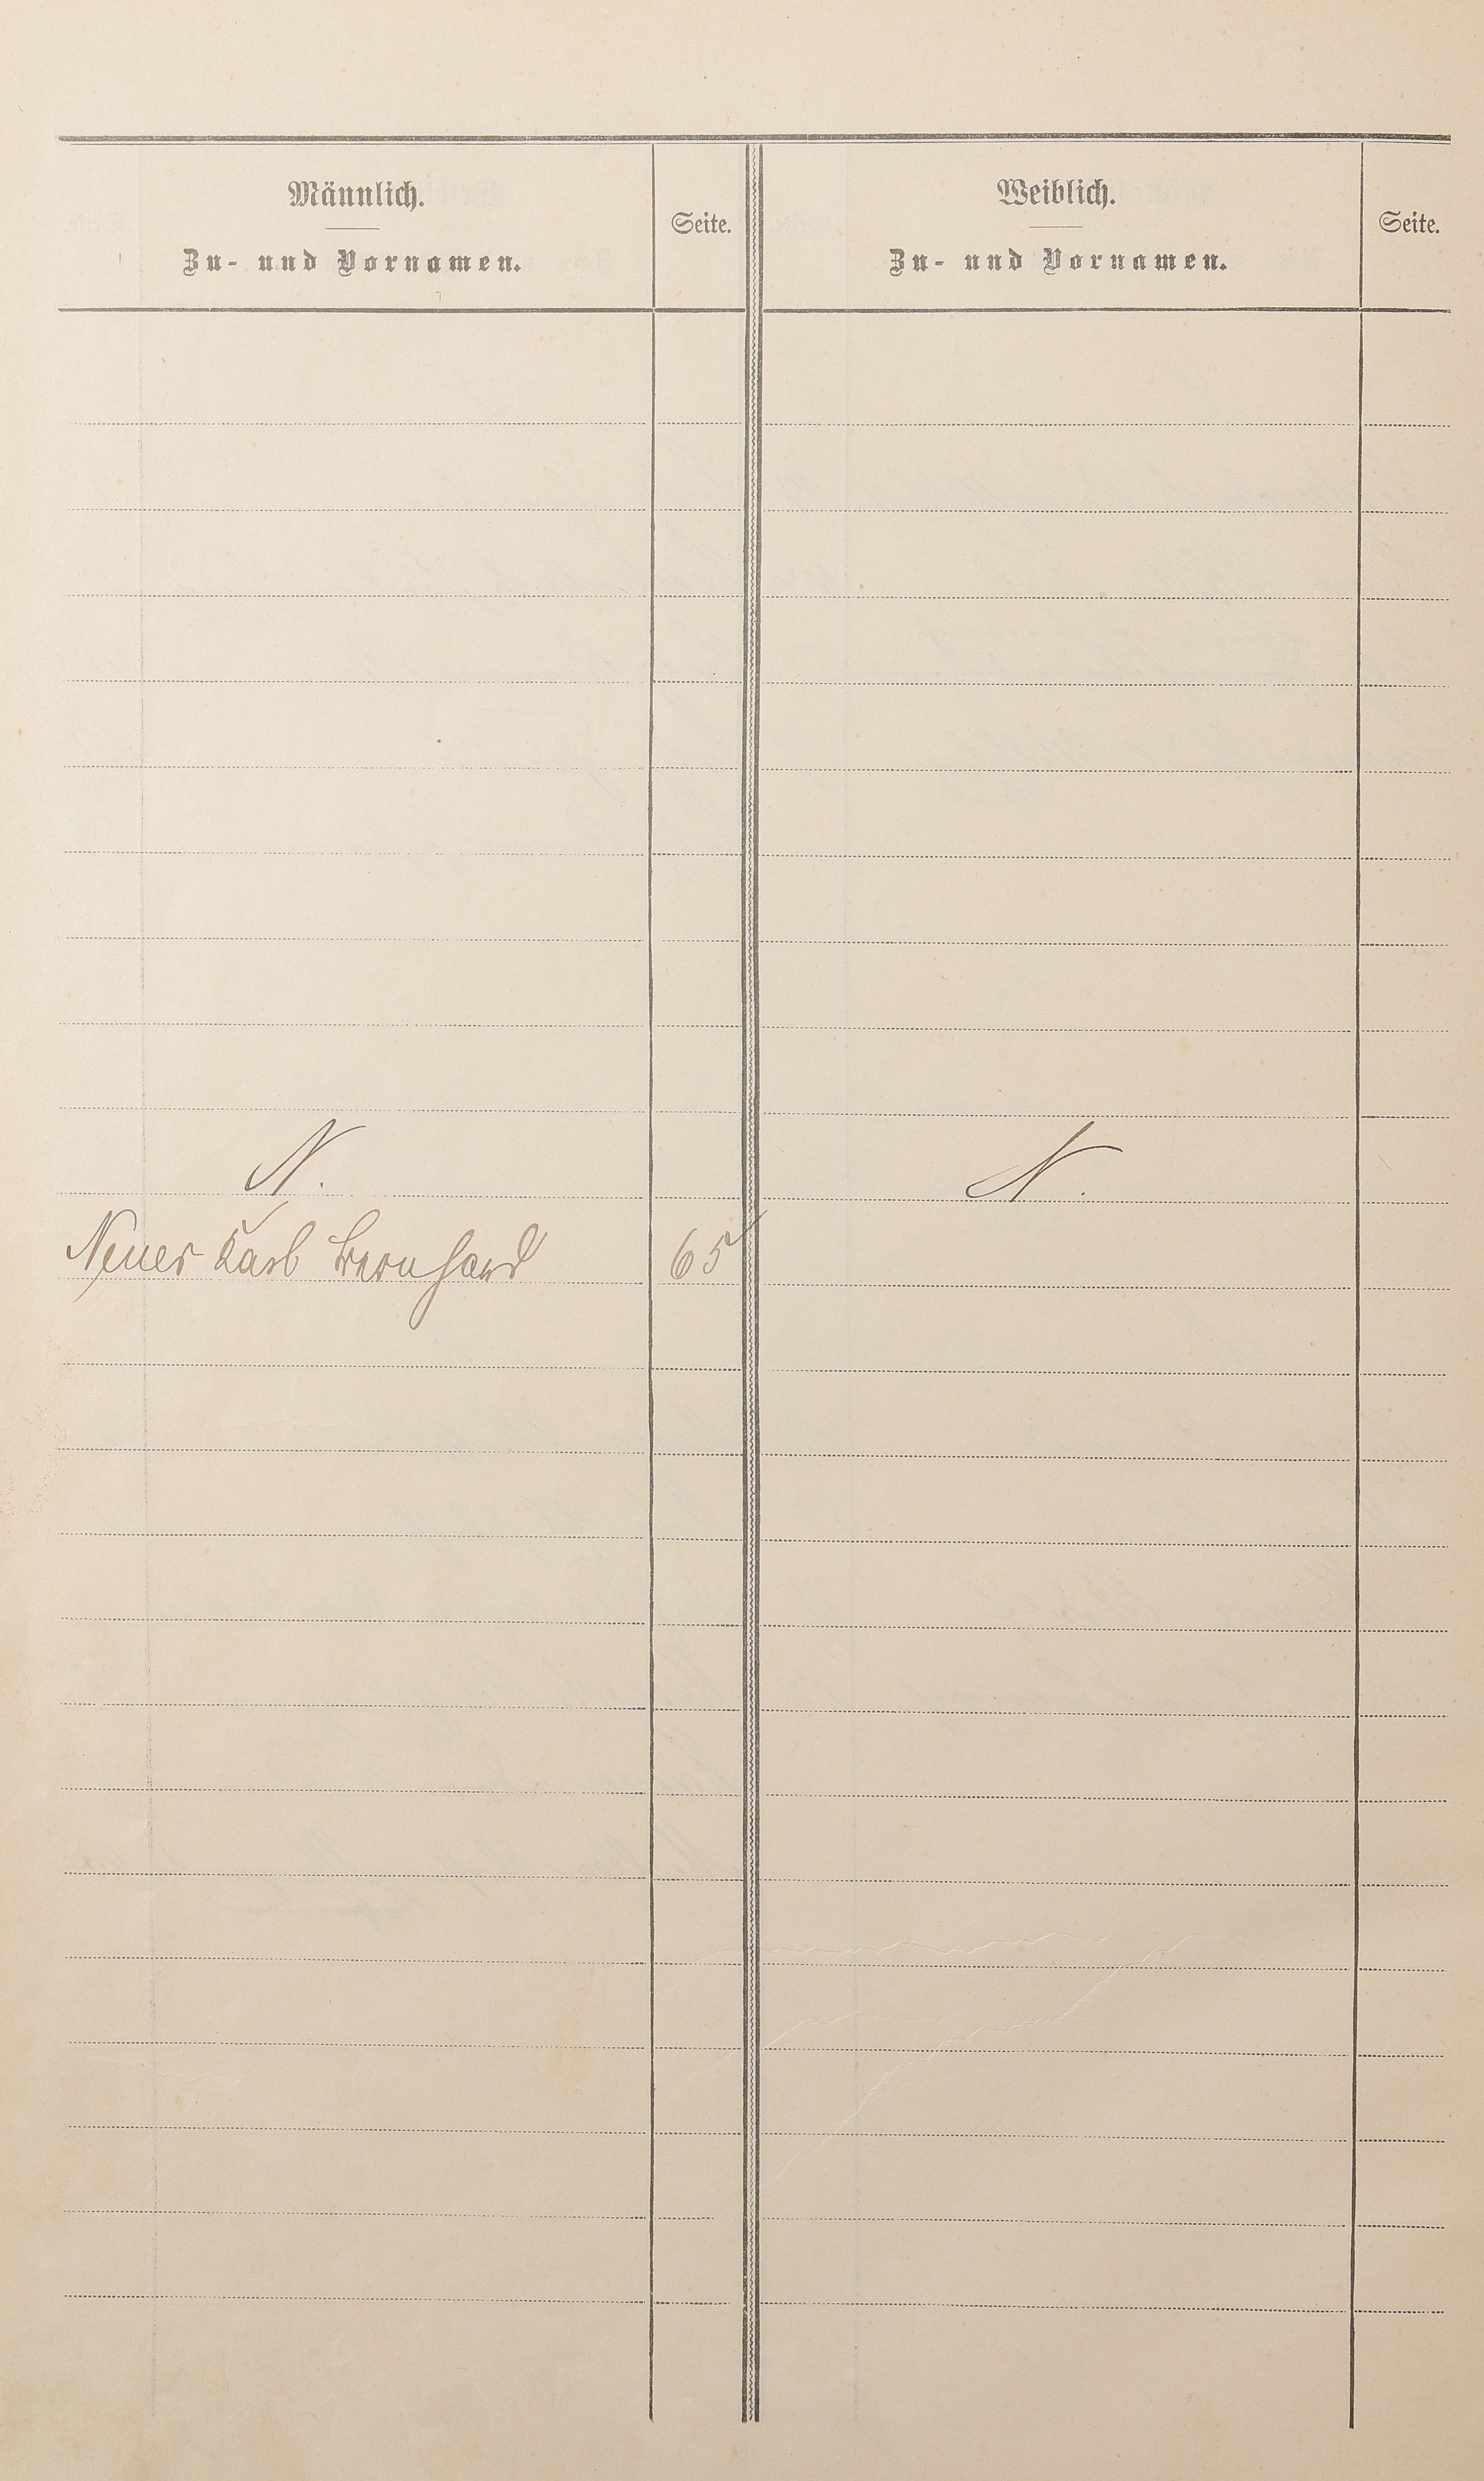 Männlich.
Zu- und Vornamen.
Seite.
Weiblich.
Zu- und Vornamen.
Seite.
N.
N.
Neuer Karl Bernhard
65